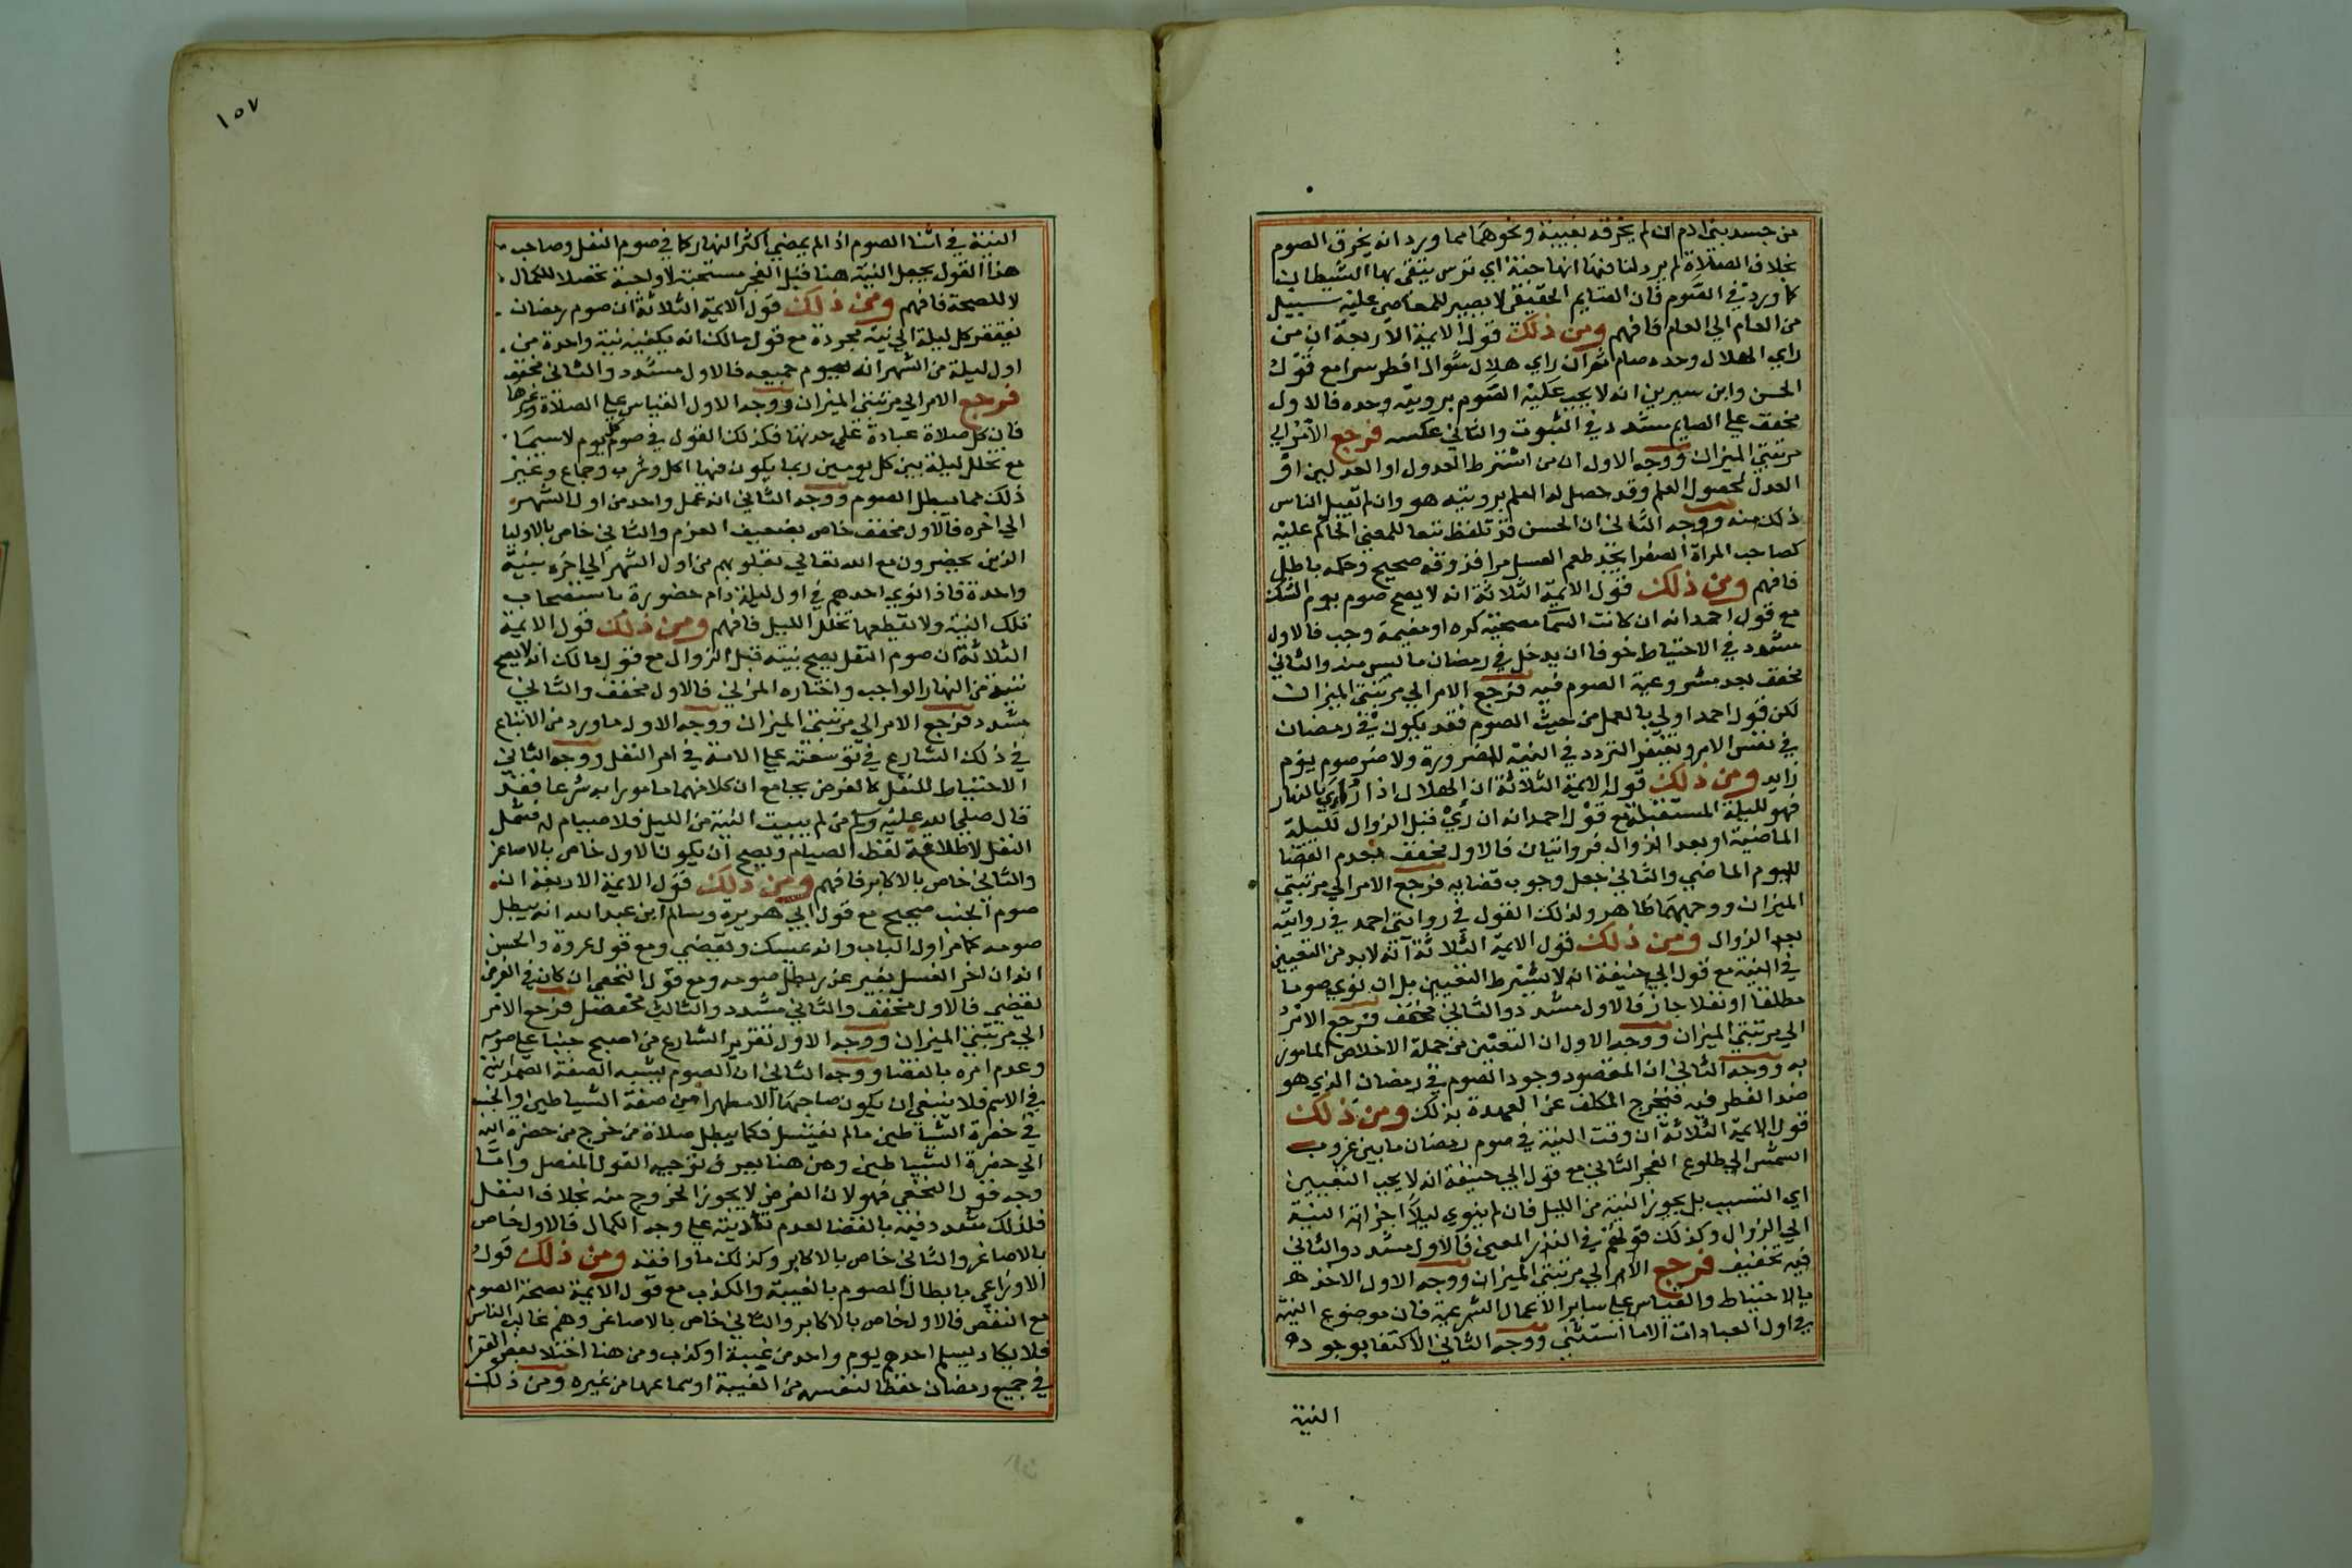 من جسد بني ادم ان لم يخرقه بغيبة ونحوهما مما ورد انه يخرق الصوم
بخلاف الصلاة لم يرد لنا فيها انها جنة اي ترس يتقى بها الشيطان
كما ورد في الصوم فان الصايم الحقيقي لا يصير للمعاصي عليه سبيل
من العام الي العام فافهم ومن ذلك قول الايمة الاربعة ان من
راي الهلال وحده صام ثم ان راي هلال شوال افطر سرا مع قول
الحسن وابن سيرين انه لا يجب عليه الصوم برويته وحده فالاول
مخفف علي الصايم مشدد في الثبوت والثاني عكسه فرجع الامر الي
مرتبتي الميزان ووجه الاول ان من اشترط العدول او العدلين او
العدل لحصول العلم وقد حصل له العلم برويته هو وان لم تقبل الناس
ذلك منه ووجه الثاني ان الحسن قد تلفظ تبعا للمعني الحاكم عليه
كصاحب المراة الصفرا يجد طعم العسل مرا فذوقه صحيح وحكمه باطل
فافهم ومن ذلك قول الايمة الثلاثة انه لا يصح صوم يوم الشك
مع قول احمد انه ان كانت السما مصحية كره او مغيمة وجب فالاول
مشدد في الاحتياط خوفا ان يدخل في رمضان ما ليس منه والثاني
مخفف بعد مشروعية الصوم فيه فرجع الامر الي مرتبتي الميزان
لكن قول احمد اولي بالعمل من حيث الصوم فقد يكون في رمضان
في نفس الامر ويغتفر التردد في النية للضرورة ولا ضر صوم يوم
زايد ومن ذلك قول الايمة الثلاثة ان الهلال اذا رؤي بالنهار
فهو لليلة المستقبلة مع قول احمد انه ان رؤي قبل الزوال لليلة
الماضية او بعد الزوال فروايتان فالاول مخفف بعدم القضا
لليوم الماضي والثاني جعل وجوب قضايه فرجع الامر الي مرتبتي
الميزان ووجههما ظاهر ولذلك القول في روايتي احمد في رواية
بعد الزوال ومن ذلك قول الايمة الثلاثة انه لا بد من التعيين
في النية مع قول ابي حنيفة انه لا يشترط التعيين بل ان نوي صوما
مطلقا او نفلا جاز فالاول مشدد والثاني مخفف فرجع الامر
الي مرتبتي الميزان ووجه الاول ان التعيين من جملة الاخلاص المامور
به ووجه الثاني ان المقصود وجود الصوم في رمضان الذي هو
ضد الفطر فيه فيخرج المكلف عن العهدة بذلك ومن ذلك
قول الايمة الثلاثة ان وقت النية في صوم رمضان ما بين غروب
الشمس الي طلوع الفجر الثاني مع قول ابي حنيفة انه لا يجب التعيين
اي التبييت بل يجوز النية من الليل فان لم ينوي ليلا اجزاته النية
الي الزوال وكذلك قولهم في النذر المعين فالاول مشدد والثاني
فيه تخفيف فرجع الامر الي مرتبتي الميزان ووجه الاول الاخذ
بالاحتياط والقياس علي ساير الاعمال الشرعية فان موضوع النية
في اول العبادات الا ما استثني ووجه الثاني الاكتفا بوجود
النية
١٥٧
النية في اثنا الصوم اذا لم يمضي اكثر النهار كما في صوم النفل وصاحب
هذا القول يجعل النية هنا قبل الفجر مستحبة لا واجبة تحصيلا للكمال
لا للصحة فافهم ومن ذلك قول الايمة الثلاثة ان صوم رمضان
يفتقر كل ليلة الي نية مجردة مع قول مالك انه يكفيه نية واحدة من
اول ليلة من الشهر انه يصوم جميعه فالاول مشدد والثاني مخفف
فرجع الامر الي مرتبتي الميزان ووجه الاول القياس علي الصلاة وغيرها
فان كل صلاة عبادة علي حدتها فكذلك القول في صوم كل يوم لا سيما
مع تخلل ليلة بين كل يومين ربما يكون فيها اكل وشرب وجماع وغير
ذلك مما يبطل الصوم ووجه الثاني انه عمل واحد من اول الشهر
الي اخره فالاول مخفف خاص بضعيف العزم والثاني خاص بالاوليا
الذين يحضرون مع الله تعالي بقلوبهم من اول الشهر الي اخره بنية
واحدة فاذا نوي احدهم في اول ليلة دام حضوره باستصحاب
تلك النية ولا يقطعها تخلل الليل فافهم ومن ذلك قول الايمة
الثلاثة ان صوم النفل يصح بنيته قبل الزوال مع قول مالك انه لا يصح
بنية من النهار الواجب واختاره المزني فالاول مخفف والثاني
مشدد فرجع الامر الي مرتبتي الميزان ووجه الاول ما ورد من الاتباع
في ذلك الشارع في توسعته علي الامة في امر النفل ووجه الثاني
الاحتياط للنفل كالفرض بجامع ان كلا منهما مامورا به شرعا فقد
قال صلي الله عليه وسلم من لم يبيت النية من الليل فلا صيام له فشمل
النفل لاطلاعه لفظ الصيام ويصح ان يكون الاول خاص بالاصاغر
والثاني خاص بالاكابر فافهم ومن ذلك قول الايمة الاربعة ان
صوم الجنب صحيح مع قول ابي هريرة وسالم ابن عبد الله انه يبطل
صومه كما مر اول الباب وانه يمسك ويقضي ومع قول عروة والحسن
انه ان اخر الغسل بغير عذر بطل صومه ومع قول النخعي ان كان في الفرض
يقضي فالاول مخفف والثاني مشدد والثالث مفصل فرجع الامر
الي مرتبتي الميزان ووجه الاول تقرير الشارع من اصبح جنبا علي صومه
وعدم امره بالقضا ووجه الثاني ان الصوم يشبه الصفة الصمدانية
في الاسم فلا ينبغي ان يكون صاحبها الا مطهرا من صفة الشياطين والجنب
في حضرة الشياطين ما لم يغتسل فكما يبطل صلاة من خرج من حضرة الله
الي حضرة الشياطين ومن هنا يعرف توجيه القول المفصل واما
وجه قول النخعي فهو لان الفرض لا يجوز الخروج منه بخلاف النفل
فلذلك شدد فيه بالقضا لعدم تاديته علي وجه الكمال فالاول خاص
بالاصاغر والثاني خاص بالاكابر وكذلك ما وافقه ومن ذلك قول
الاوزاعي بابطال الصوم بالغيبة والكذب مع قول الايمة بصحة الصوم
مع النقص فالاول خاص بالاكابر والثاني خاص بالاصاغر وهم غالب الناس
فلا يكاد يسلم احدهم يوم واحد من غيبة او كذب ومن هنا اختلا بعض الفقرا
في جميع رمضان حفظا لنفسه من الغيبة او سماعها من غيره ومن ذلك